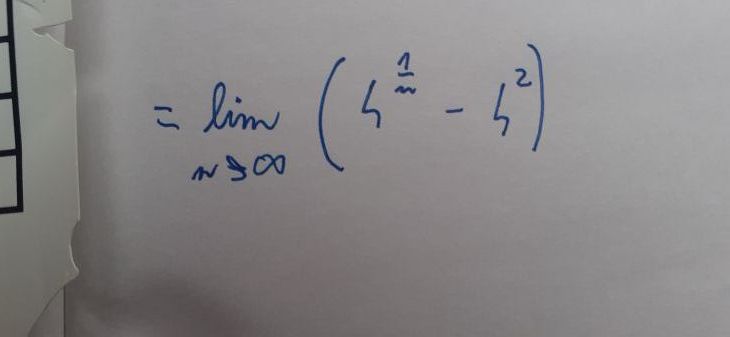 = lim_{n→∞} ( 4^{1/n} - 4^2 )